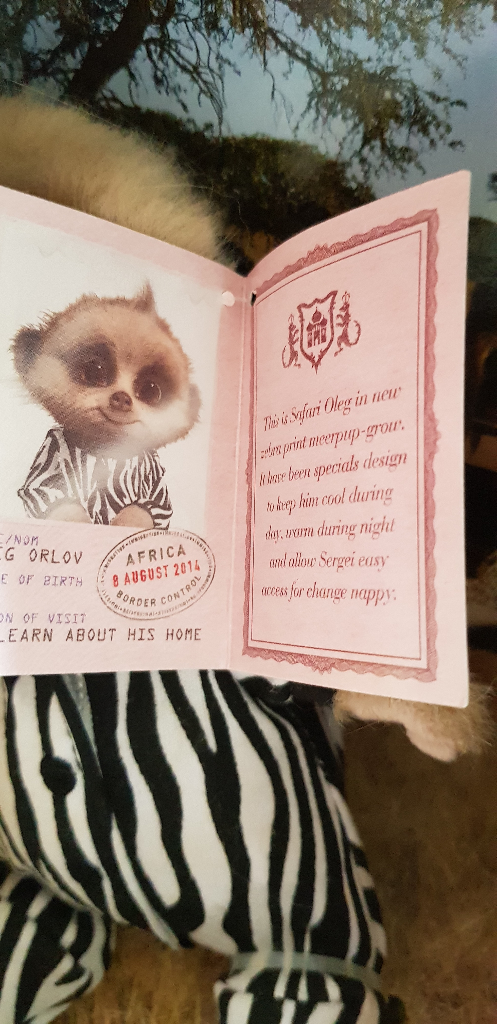 E/NOM
EG ORLOV
E OF BIRTH
ON OF VISIT
LEARN ABOUT HIS HOME
AFRICA
8 AUGUST 2014
BORDER CONTROL
This is Safari Oleg in new
zebra print meerpup-grow.
It have been specials design
to keep him cool during
day, warm during night
and allow Sergei easy
access for change nappy.